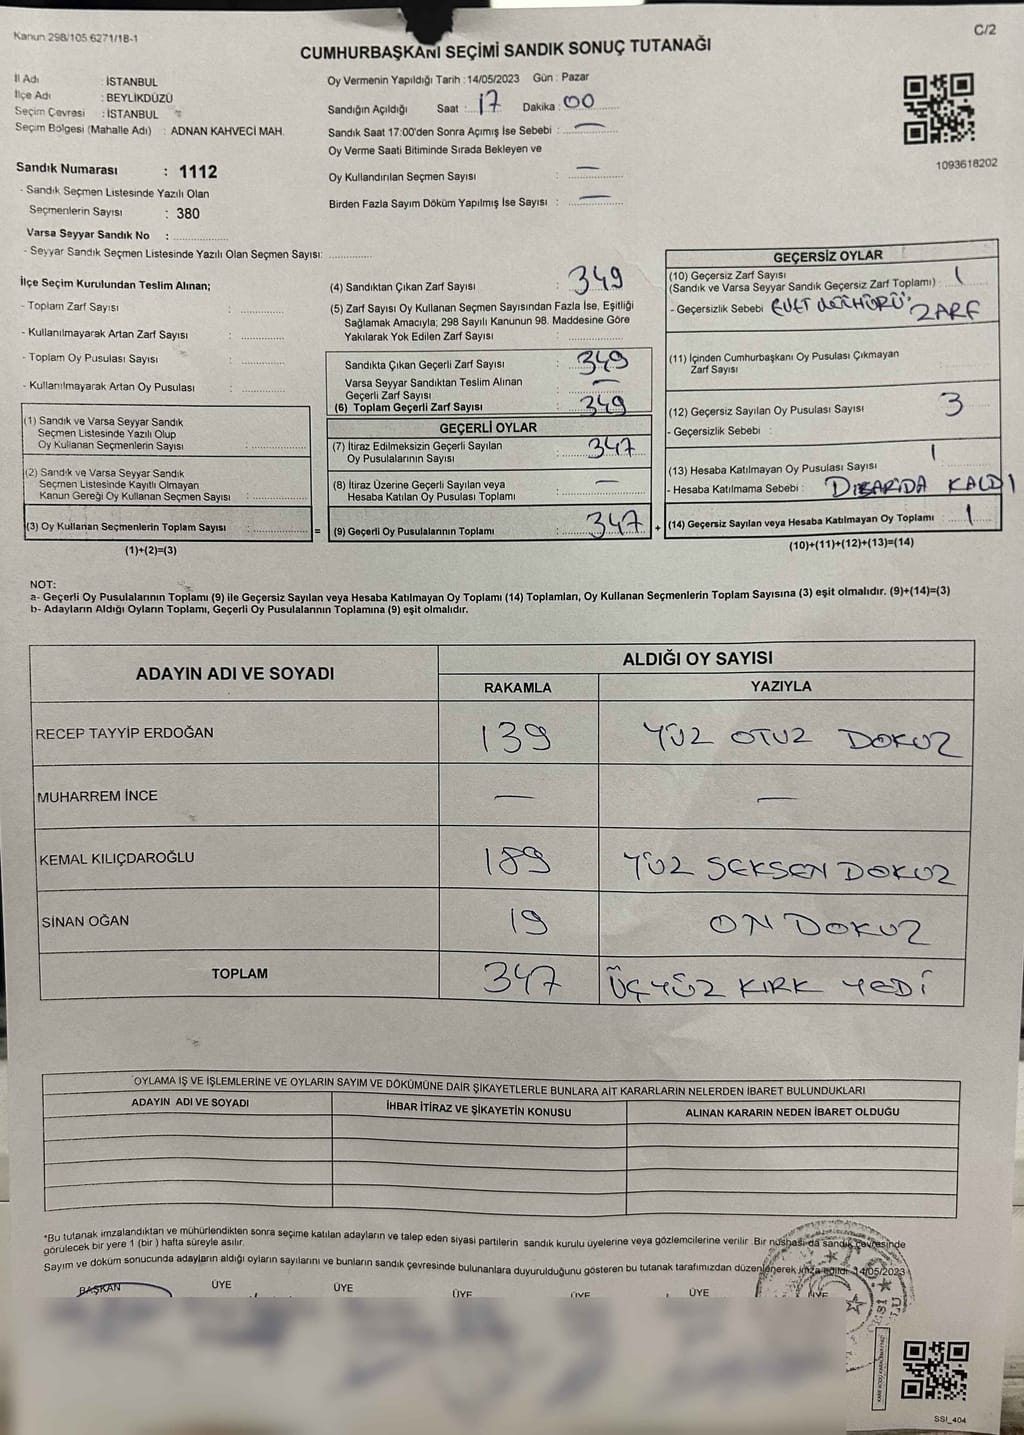 Kanun 298/105 6271/18-1
C/2
CUMHURBAŞKANI SEÇİMİ SANDIK SONUÇ TUTANAĞI
İl Adı : İSTANBUL
İlçe Adı : BEYLİKDÜZÜ
Seçim Çevresi : İSTANBUL
Seçim Bölgesi (Mahalle Adı) : ADNAN KAHVECİ MAH.
Oy Vermenin Yapıldığı Tarih : 14/05/2023 Gün : Pazar
Sandığın Açıldığı Saat : 17 Dakika : 00
Sandık Saat 17:00'den Sonra Açımış İse Sebebi : —
Oy Verme Saati Bitiminde Sırada Bekleyen ve
Oy Kullandırılan Seçmen Sayısı : —
Birden Fazla Sayım Döküm Yapılmış İse Sayısı : —
1093618202
Sandık Numarası : 1112
- Sandık Seçmen Listesinde Yazılı Olan
Seçmenlerin Sayısı : 380
Varsa Seyyar Sandık No :
- Seyyar Sandık Seçmen Listesinde Yazılı Olan Seçmen Sayısı:
İlçe Seçim Kurulundan Teslim Alınan;
- Toplam Zarf Sayısı :
- Kullanılmayarak Artan Zarf Sayısı :
- Toplam Oy Pusulası Sayısı :
- Kullanılmayarak Artan Oy Pusulası :
(1) Sandık ve Varsa Seyyar Sandık
Seçmen Listesinde Yazılı Olup
Oy Kullanan Seçmenlerin Sayısı :
(2) Sandık ve Varsa Seyyar Sandık
Seçmen Listesinde Kayıtlı Olmayan
Kanun Gereği Oy Kullanan Seçmen Sayısı :
(3) Oy Kullanan Seçmenlerin Toplam Sayısı : =
(1)+(2)=(3)
(4) Sandıktan Çıkan Zarf Sayısı : 349
(5) Zarf Sayısı Oy Kullanan Seçmen Sayısından Fazla İse, Eşitliği
Sağlamak Amacıyla; 298 Sayılı Kanunun 98. Maddesine Göre
Yakılarak Yok Edilen Zarf Sayısı :
Sandıkta Çıkan Geçerli Zarf Sayısı : 349
Varsa Seyyar Sandıktan Teslim Alınan
Geçerli Zarf Sayısı : —
(6) Toplam Geçerli Zarf Sayısı : 349
GEÇERLİ OYLAR
(7) İtiraz Edilmeksizin Geçerli Sayılan
Oy Pusulalarının Sayısı : 347
(8) İtiraz Üzerine Geçerli Sayılan veya
Hesaba Katılan Oy Pusulası Toplamı : —
(9) Geçerli Oy Pusulalarının Toplamı : 347 +
GEÇERSİZ OYLAR
(10) Geçersiz Zarf Sayısı
(Sandık ve Varsa Seyyar Sandık Geçersiz Zarf Toplamı) : 1
- Geçersizlik Sebebi ZARF
(11) İçinden Cumhurbaşkanı Oy Pusulası Çıkmayan
Zarf Sayısı
(12) Geçersiz Sayılan Oy Pusulası Sayısı : 3
- Geçersizlik Sebebi :
(13) Hesaba Katılmayan Oy Pusulası Sayısı : 1
- Hesaba Katılmama Sebebi : DIŞARIDA KALDI
(14) Geçersiz Sayılan veya Hesaba Katılmayan Oy Toplamı : 1
(10)+(11)+(12)+(13)=(14)
NOT:
a- Geçerli Oy Pusulalarının Toplamı (9) ile Geçersiz Sayılan veya Hesaba Katılmayan Oy Toplamı (14) Toplamları, Oy Kullanan Seçmenlerin Toplam Sayısına (3) eşit olmalıdır. (9)+(14)=(3)
b- Adayların Aldığı Oyların Toplamı, Geçerli Oy Pusulalarının Toplamına (9) eşit olmalıdır.
ADAYIN ADI VE SOYADI
ALDIĞI OY SAYISI
RAKAMLA YAZIYLA
RECEP TAYYİP ERDOĞAN 139 YÜZ OTUZ DOKUZ
MUHARREM İNCE — —
KEMAL KILIÇDAROĞLU 189 YÜZ SEKSEN DOKUZ
SİNAN OĞAN 19 ON DOKUZ
TOPLAM 347 ÜÇYÜZ KIRK YEDİ
OYLAMA İŞ VE İŞLEMLERİNE VE OYLARIN SAYIM VE DÖKÜMÜNE DAİR ŞİKAYETLERLE BUNLARA AİT KARARLARIN NELERDEN İBARET BULUNDUKLARI
ADAYIN ADI VE SOYADI İHBAR İTİRAZ VE ŞİKAYETİN KONUSU ALINAN KARARIN NEDEN İBARET OLDUĞU
*Bu tutanak imzalandıktan ve mühürlendikten sonra seçime katılan adayların ve talep eden siyasi partilerin sandık kurulu üyelerine veya gözlemcilerine verilir. Bir nüshası da sandık çevresinde
görülecek bir yere 1 (bir) hafta süreyle asılır.
Sayım ve döküm sonucunda adayların aldığı oyların sayılarını ve bunların sandık çevresinde bulunanlara duyurulduğunu gösteren bu tutanak tarafımızdan düzenlenerek imza edildi. 14/05/2023
BAŞKAN ÜYE ÜYE ÜYE ÜYE ÜYE ÜYE
SSI_404